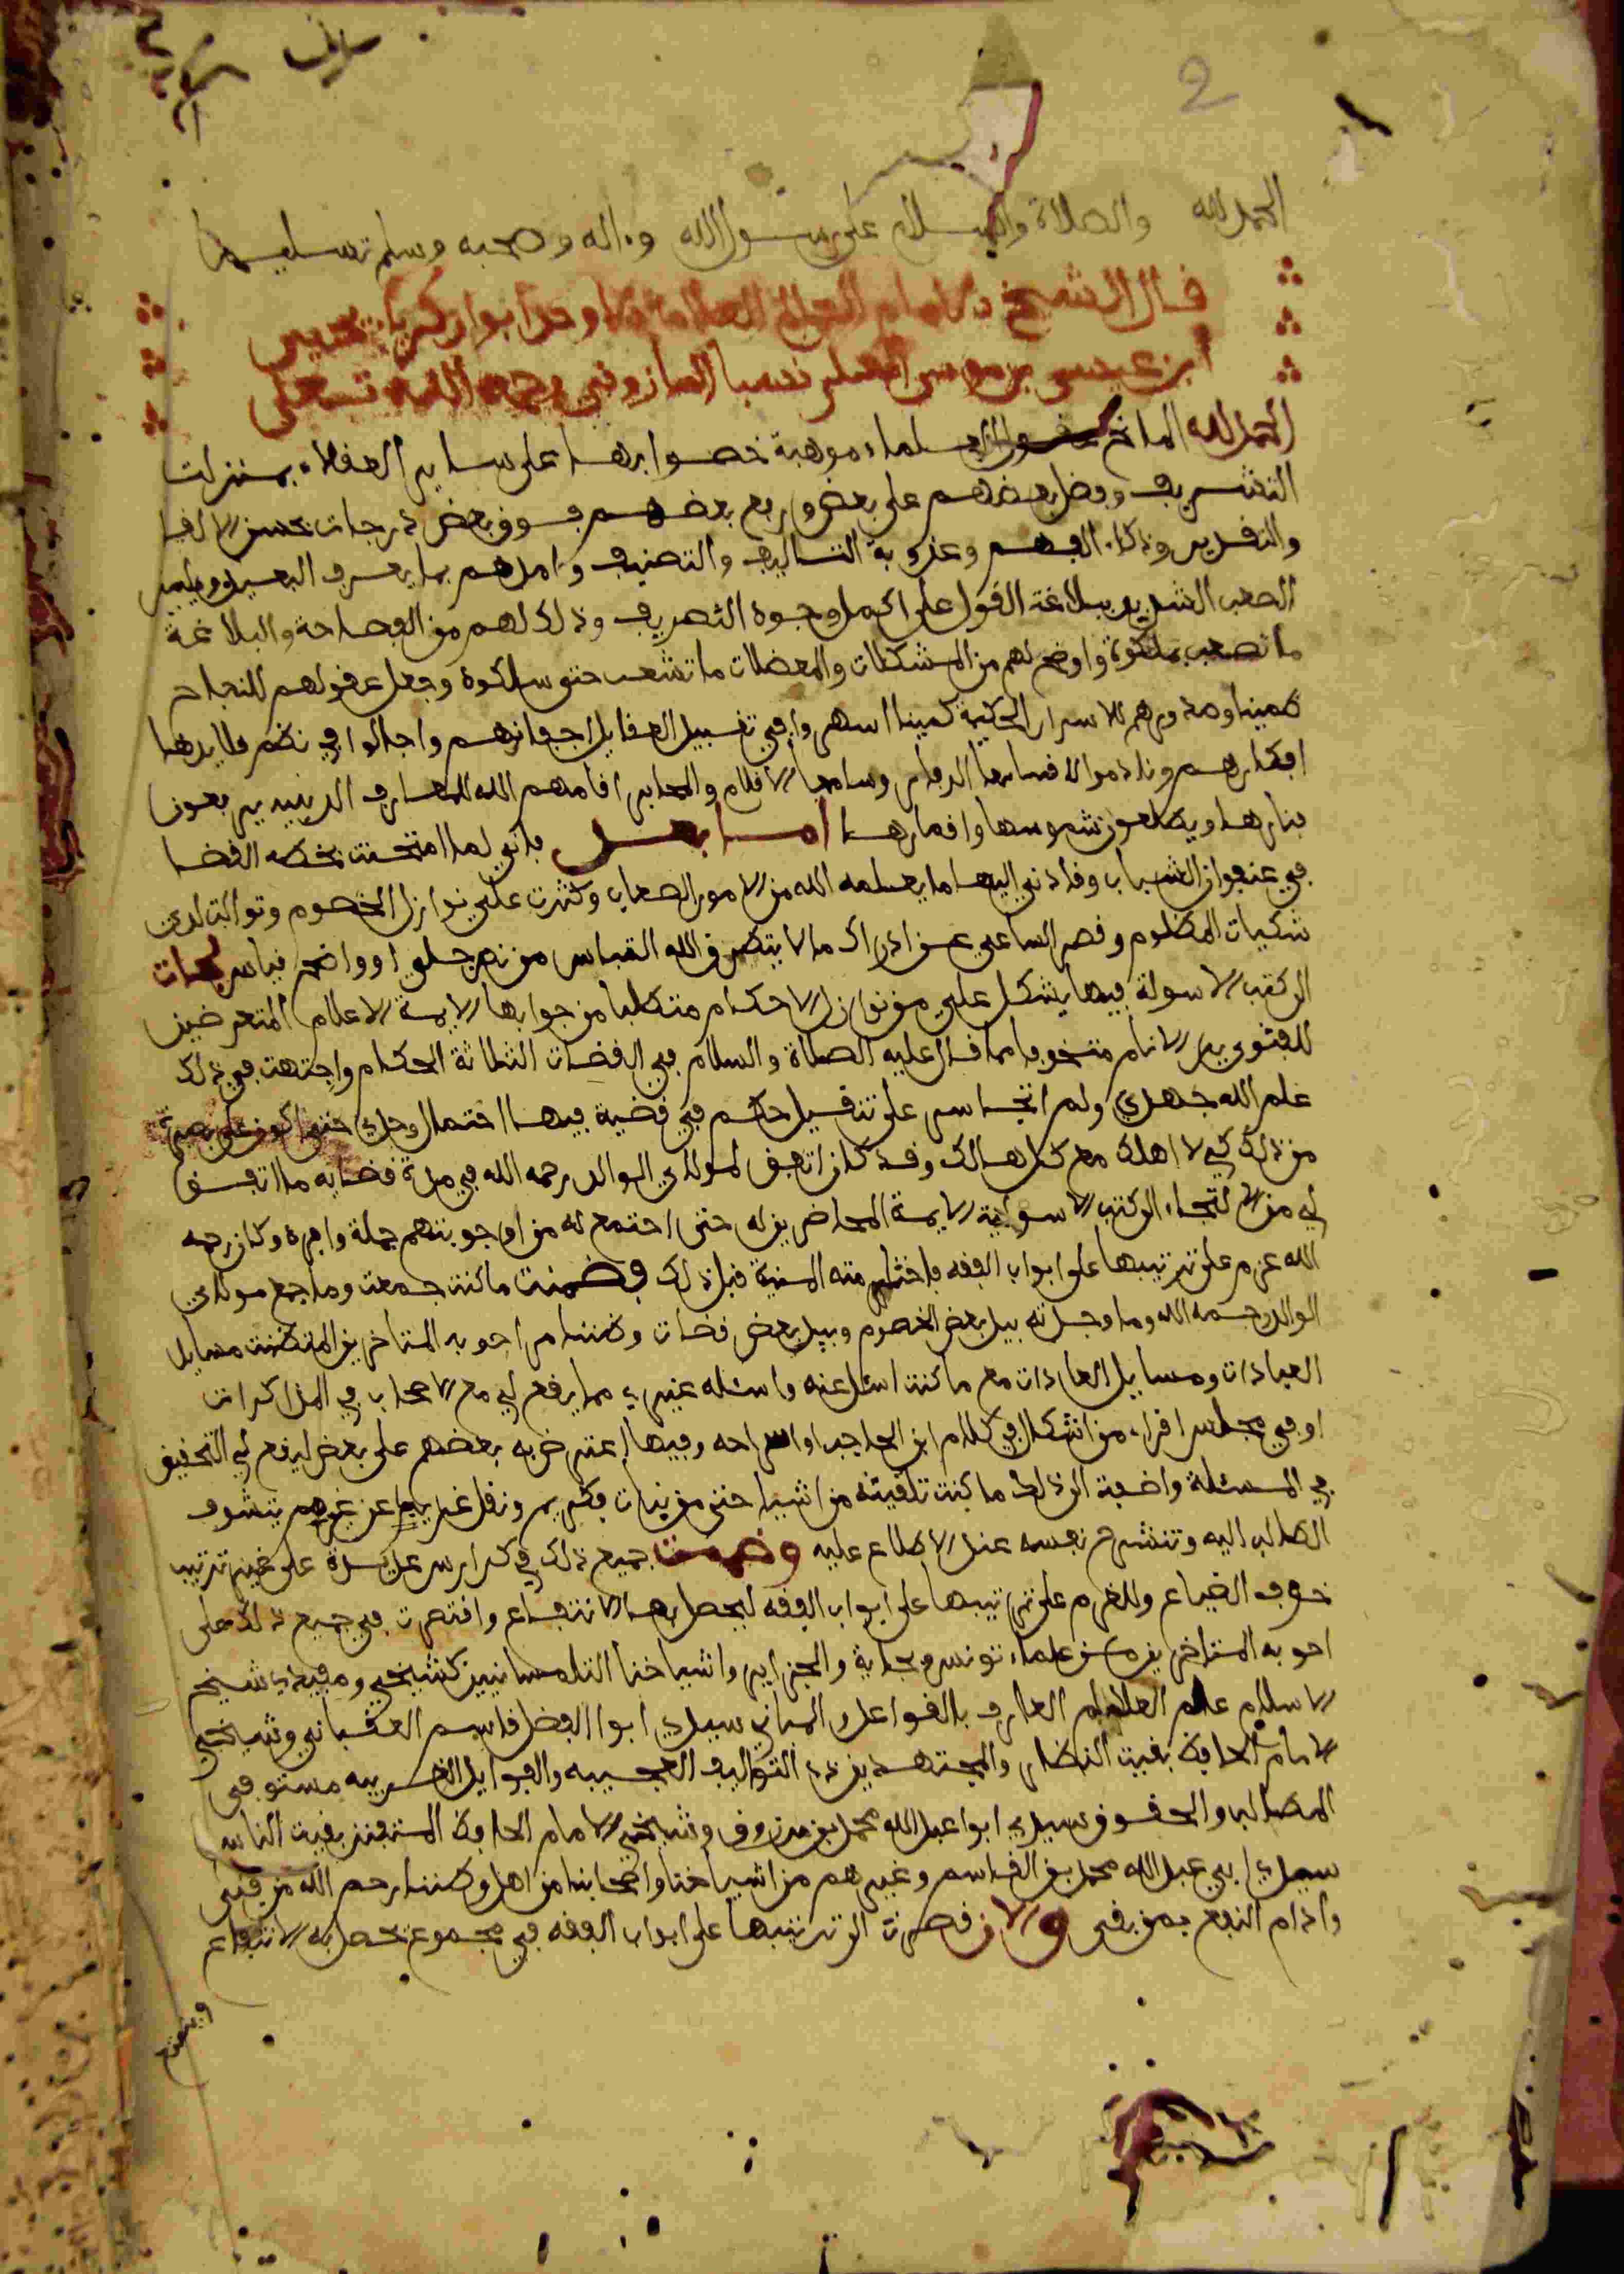 2
الحمد لله والصلاة والسلام على رسول الله وءاله وصحبه وسلم تسليما
قال الشيخ الامام العالم العلامة الاوحد ابو زكرياء يحيى
ابن عيسى بن موسى المغيلي نسبا المازوني رحمه الله تعلى
الحمد لله المانح عقول العلماء موهبة خصوا بها على ساير العقلاء بمنزلت
التشريف وفضل بعضهم على بعض ورفع بعضهم فوق بعض درجات بحسن الالقا
والتقدير وذكاء الفهم وعذوبة التاليف والتصنيف وامدهم بما يعرف البعيد
الصعب الشديد ببلاغة القول على اكمل وجوه التصريف وذلك لهم من الفصاحة والبلاغة
ما تصعب ملكوه واوضح لهم من المشكلات والمعضلات ما تشعب حتى سلكوه وجعل عقولهم للنجاح
كمينا وصدورهم للاسرار الحكمية كمينا اسهروا في تقييد العقايل اجفانهم واجالوا في نظم قلايدها
افكارهم ونادموا الاقتباسها الدفاتر وسامها الاقلام والمحابر اقامهم الله للمعارف الدينية يرفعون
منارها ويطلعون شموسها واقمارها اما بعد فاني لما امتحنت بخطة القضا
في عنفوان الشباب وقادني اليها ما يعلمه الله من الامور الصعاب وكثرت علي نوازل الخصوم وتوالت لدي
شكيات المظلوم وقصر الساعي عن ادراك ما لا يتطرق الله القباس من نص جلي او واضح قياس لجات
الى كتب الاسولة فيما يشكل علي من نوازل الاحكام متطلبا من جوابها الايمة الاعلام المتعرضين
للفتوى بين الانام متخوفا مما قال عليه الصلاة والسلام في القضات الثلاثة الحكام واجتهدت في ذلك
علم الله جهدي ولم اتجاسر على تنفيذ حكم في قضية فيها احتمال وحدي حتى اكون على بصيرة
من ذلك كي لا اهلك مع كل هالك وقد كان اتفق لمولاي الوالد رحمه الله في مدة قضايه ما اتفق
لي من الالتجاء الى كتب الاسولية الايمة المحاضرين له حتى اجتمع له من اجوبتهم جملة وافرة وكان رحمه
الله عزم على ترتيبها على ابواب الفقه فاخترمته المنية قبل ذلك فضمنت ما كنت جمعت وما جمع مولاي
الوالد رحمه الله وما وجدته بيد بعض الخصوم وبيد بعض قضات وطننا من اجوبه المتاخرين المتضمنت مسايل
العبادات ومسايل العادات مع ما كنت اسئل عنه واسئله غيري مما يرفع لي مع الاصحاب في المذاكرات
او في مجلس اقراء من اشكال في كلام ابن الحاجب او شراحه وفيما اعترض به بعضهم على بعض ليرفع لي التحقيق
في المسئلة واضفت الى ذلك ما كنت تلقيته من اشياخي من بنات فكرهم ونقل غريب عن غيرهم يتشوف
الطالب اليه وتنشرح نفسه عند الاطلاع عليه وضمنت جميع ذلك في كراريس عديدة على غير ترتيب
خوف الضياع وللعزم على ترتيبها على ابواب الفقه ليحصل بها الانتفاع واقتصرت في جميع ذلك على
اجوبه المتاخرين من علماء تونس وبجاية والجزاير واشياخنا التلمسانيين كشيخي ومفيدي شيخ
الاسلام علم الاعلام العارف بالقواعد والمباني سيدي ابو الفضل قاسم العقباني وشيخي
الامام الحافظ بقيت النظار والمجتهدين ذي التواليف العجيبه والفوايد الغريبه مستوفي
المطالب والحقوق سيدي ابو عبد الله محمد بن مرزوق وشيخي الامام الحافظ المتفنن بقيت الناس
سيدي ابي عبد الله محمد بن القاسم وغيرهم من اشياخنا واصحابنا من اهل وطننا رحم الله من قضى
وادام النفع بمن بقي والان قصرت الى ترتيبها على ابواب الفقه في مجموع تحصل به الانتفاع